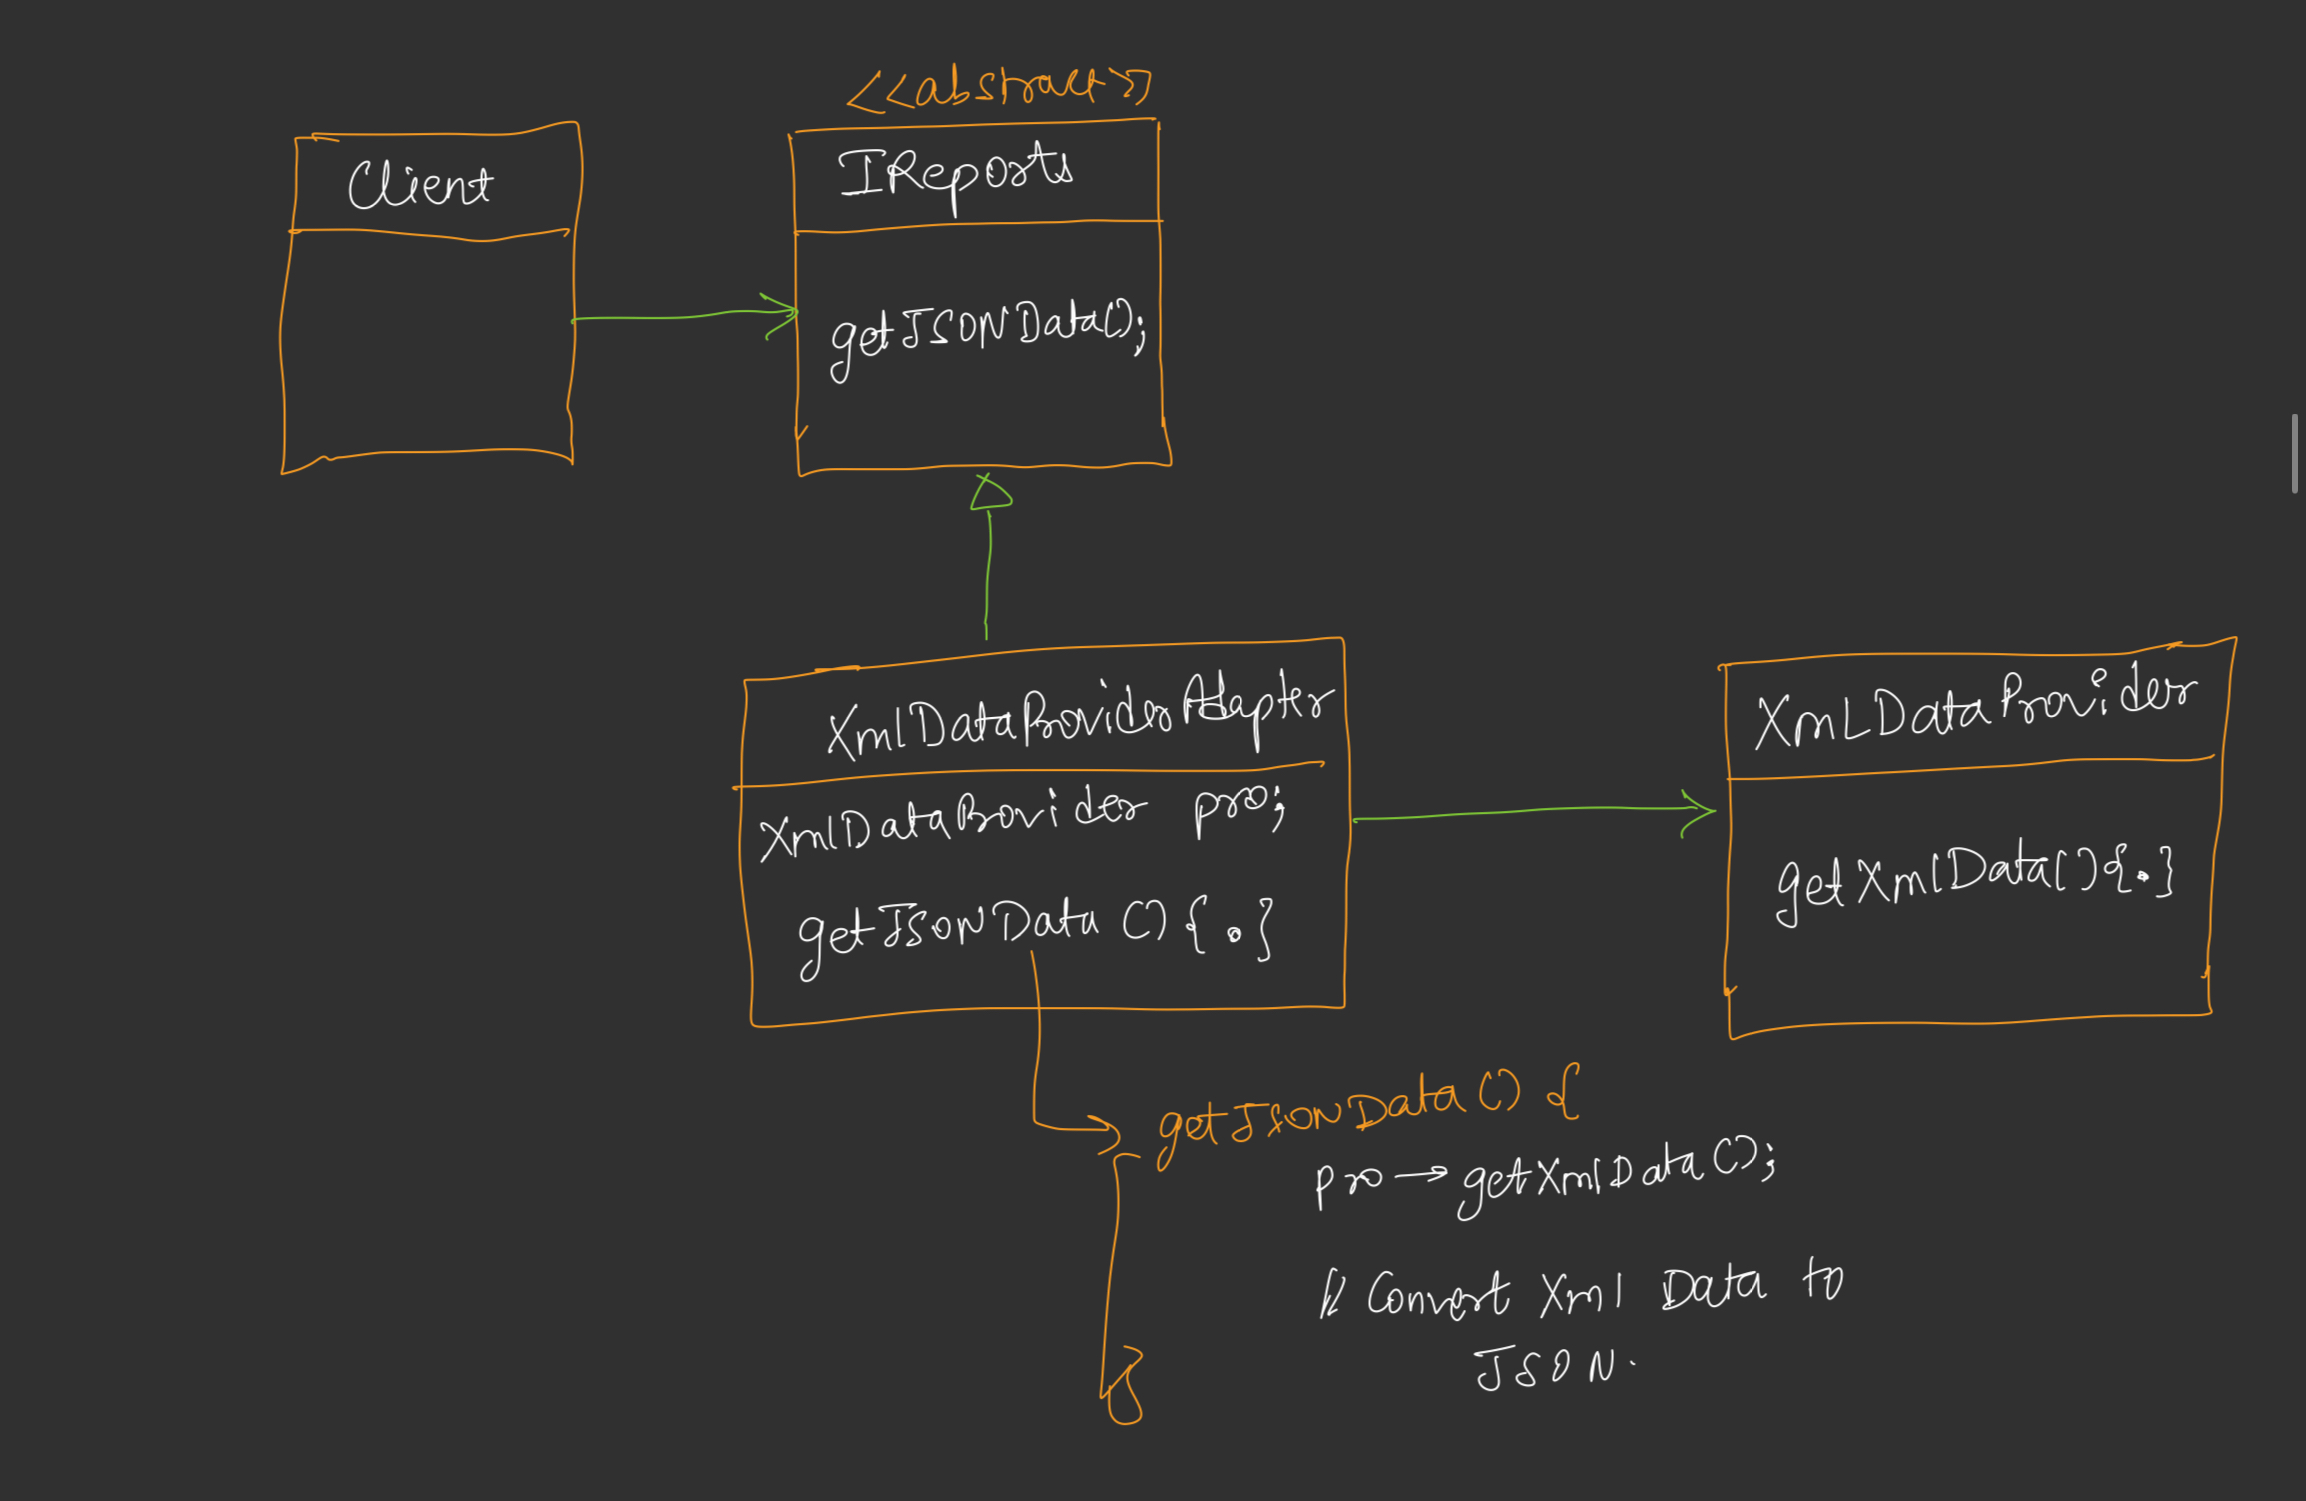 <<abstract>>
Client
IReports
getJSONData();
XmlDataProviderAdapter
XmlDataProvider pro;
getJsonData(){.}
XmLDataProvider
getXmlData(){.}
getJsonData() {
pro→getXmlData();
// Convert Xml Data to
JSON.
}